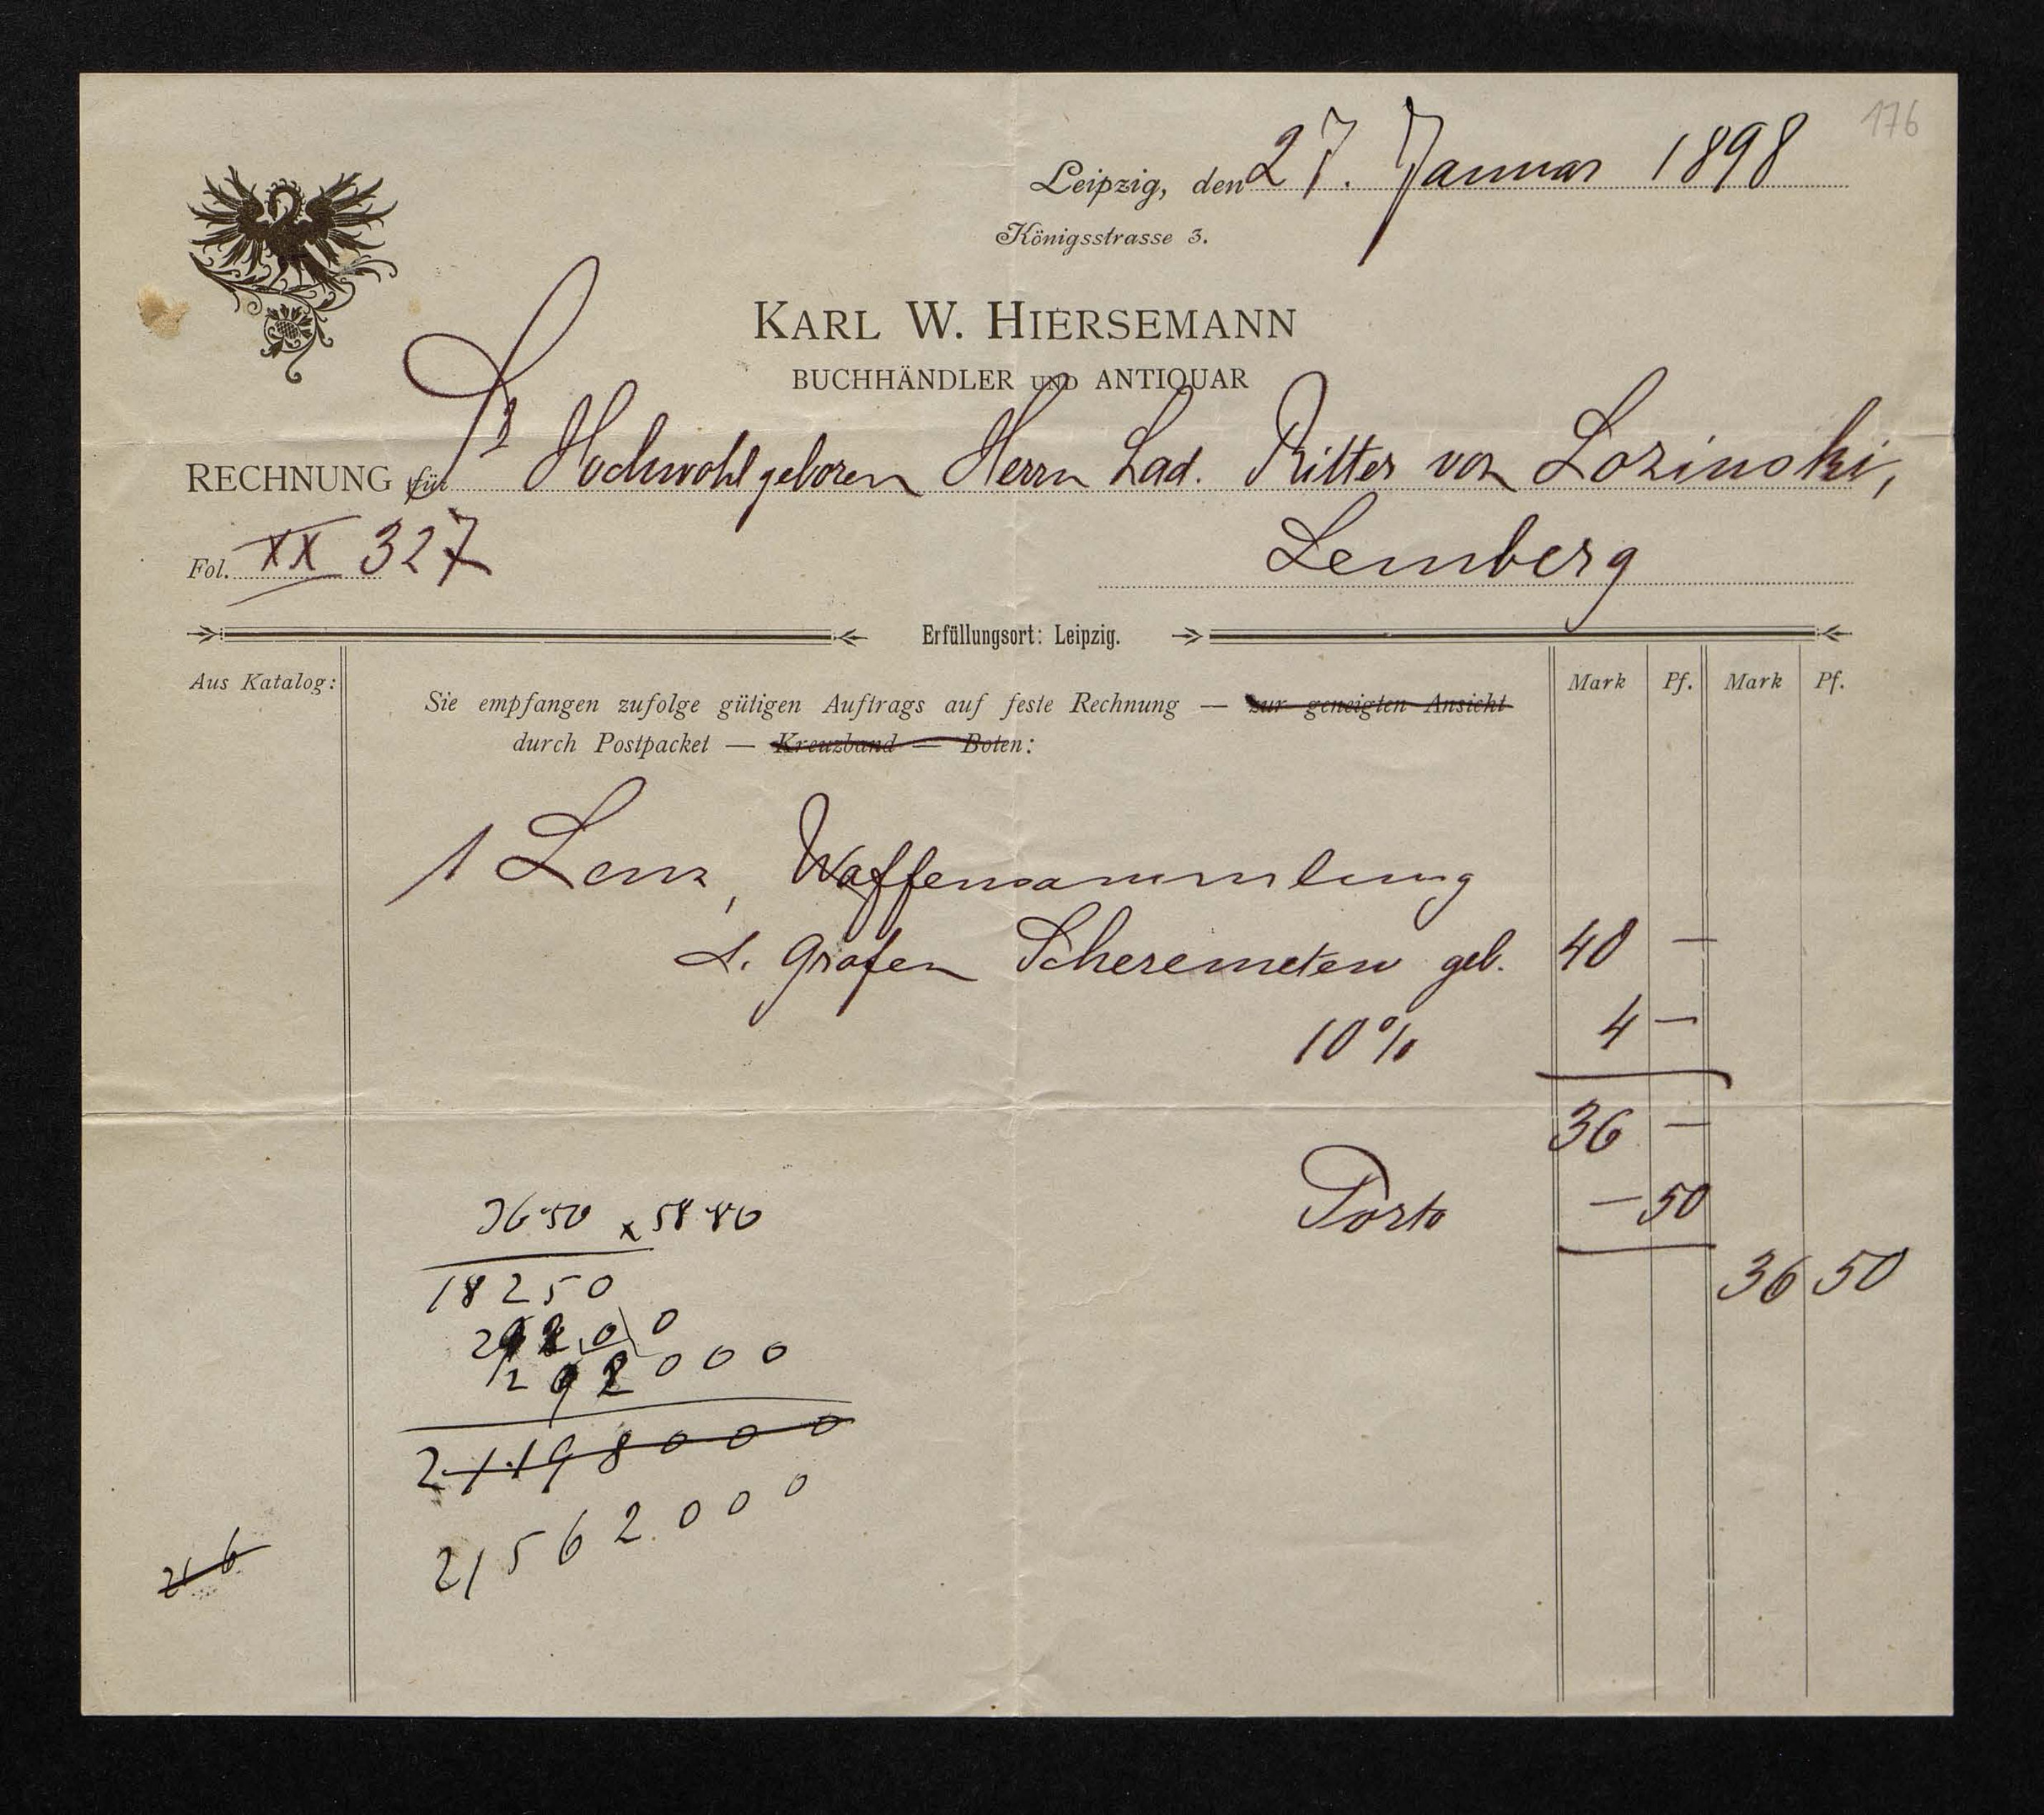 176
Leipzig, den 27. Januar 1898
Königsstrasse 3.
KARL W. HIERSEMANN
BUCHHÄNDLER UND ANTIQUAR
RECHNUNG für Sr Hochwohlgeboren Herrn Lad. Ritter von Lozinski,
Fol. XX 327
Lemberg
Erfüllungsort: Leipzig.
Aus Katalog:
Mark Pf. Mark Pf.
Sie empfangen zufolge gütigen Auftrags auf feste Rechnung — zur geneigten Ansicht
durch Postpacket — Kreuzband — Boten:
1 Lenz, Waffensammlung
d. Grafen Scheremetew geb. 40 —
10% 4 —
36 —
Porto — 50
36 50
3650 x 58 80
18250
29200
292000
21198000
21562000